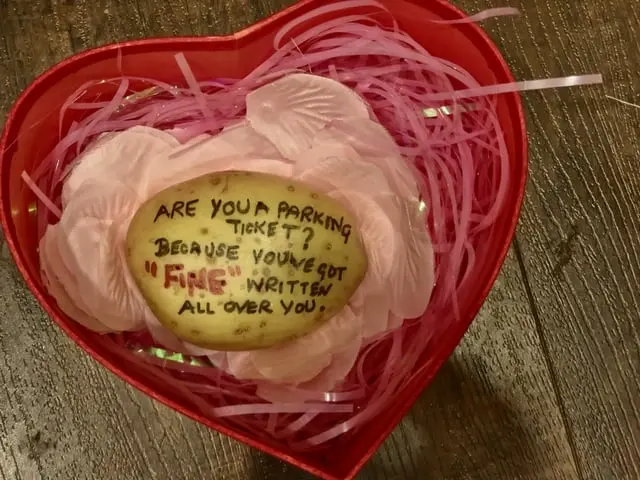 ARE YOU A PARKING
TICKET?
BECAUSE YOU'VE GOT
"FINE" WRITTEN
ALL OVER YOU.